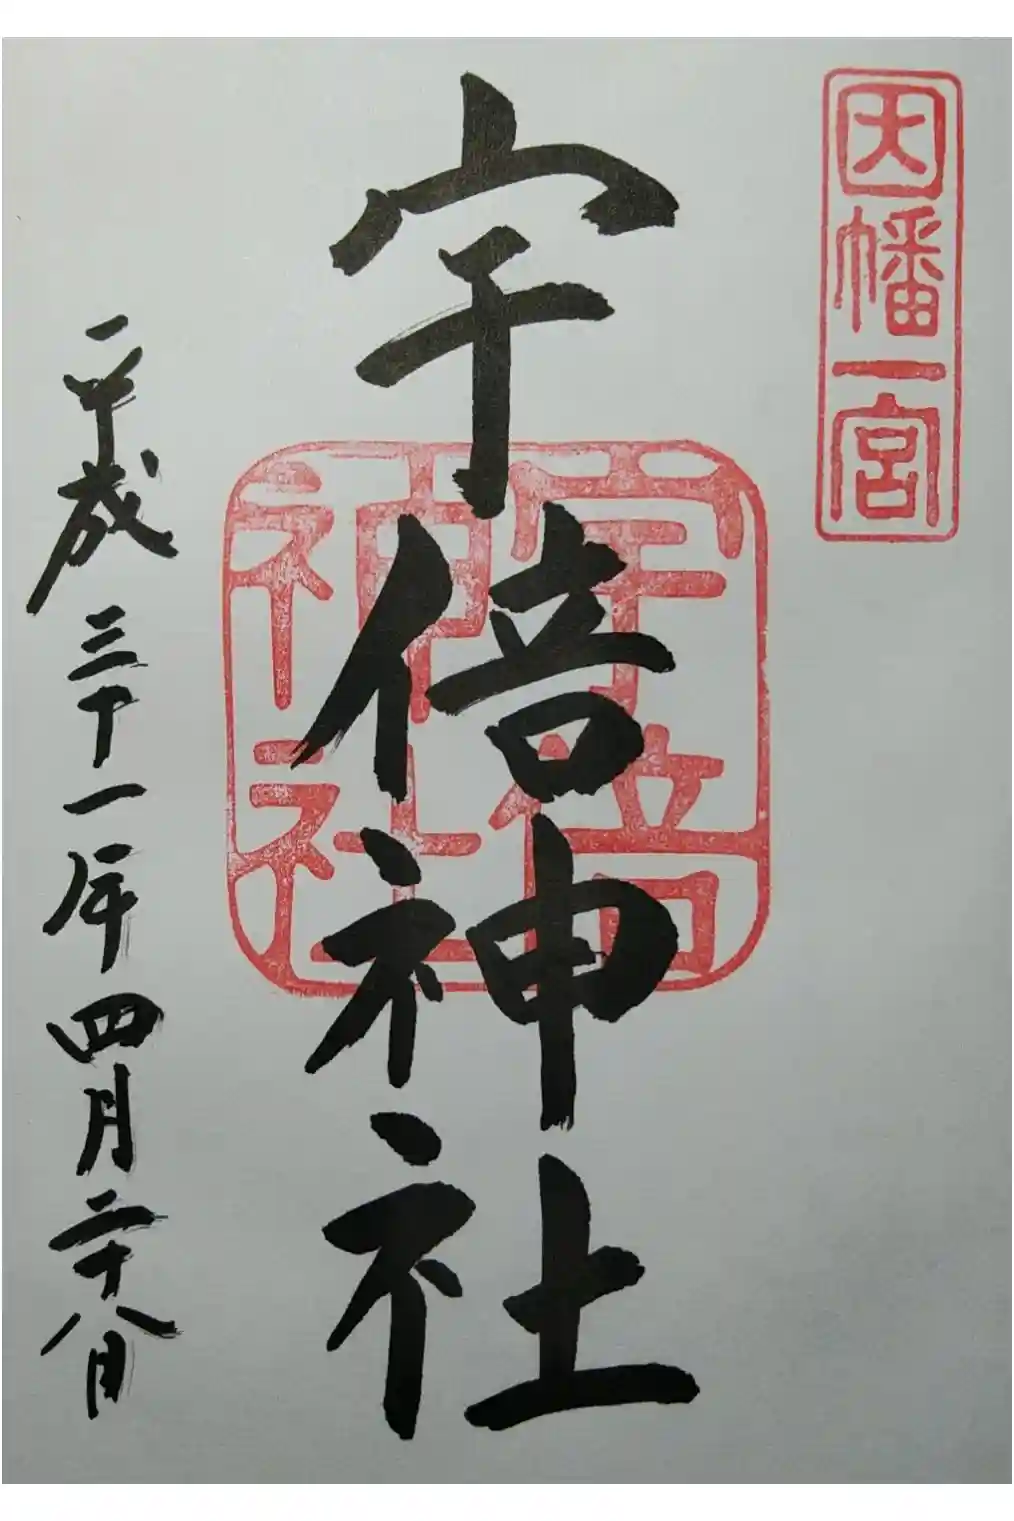 因幡一宮
宇倍神社
宇倍
神社
平成三十一年四月二十八日